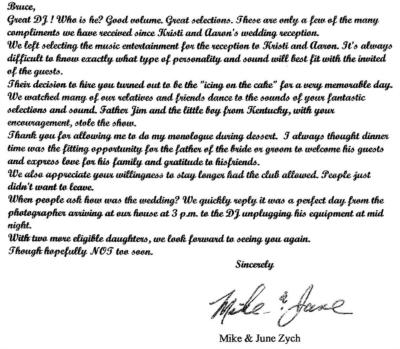 Bruce,
Great DJ ! Who is he? Good volume. Great selections. These are only a few of the many
compliments we have received since Kristi and Aaron's wedding reception.
We left selecting the music entertainment for the reception to Kristi and Aaron. It's always
difficult to know exactly what type of personality and sound will best fit with the invited
of the guests.
Their decision to hire you turned out to be the "icing on the cake" for a very memorable day.
We watched many of our relatives and friends dance to the sounds of your fantastic
selections and sound. Father Jim and the little boy from Kentucky, with your
encouragement, stole the show.
Thank you for allowing me to do my monologue during dessert. I always thought dinner
time was the fitting opportunity for the father of the bride or groom to welcome his guests
and express love for his family and gratitude to hisfriends.
We also appreciate your willingness to stay longer had the club allowed. People just
didn't want to leave.
When people ask how was the wedding? We quickly reply it was a perfect day from the
photographer arriving at our house at 3 p.m. to the DJ unplugging his equipment at mid
night.
With two more eligible daughters, we look forward to seeing you again.
Though hopefully NOT too soon.
Sincerely
Mike & June
Mike & June Zych